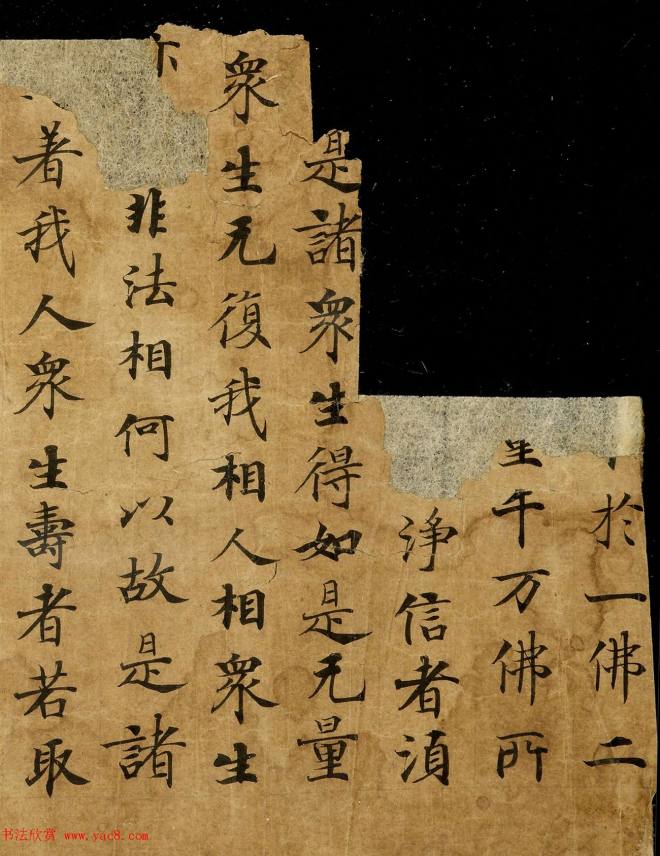 於一佛二
千万佛所
淨信者湏
是諸衆生得如是无量
衆生无復我相人相衆生
非法相何以故是諸
着我人衆生壽者若取
书法欣赏 www.yac8.com